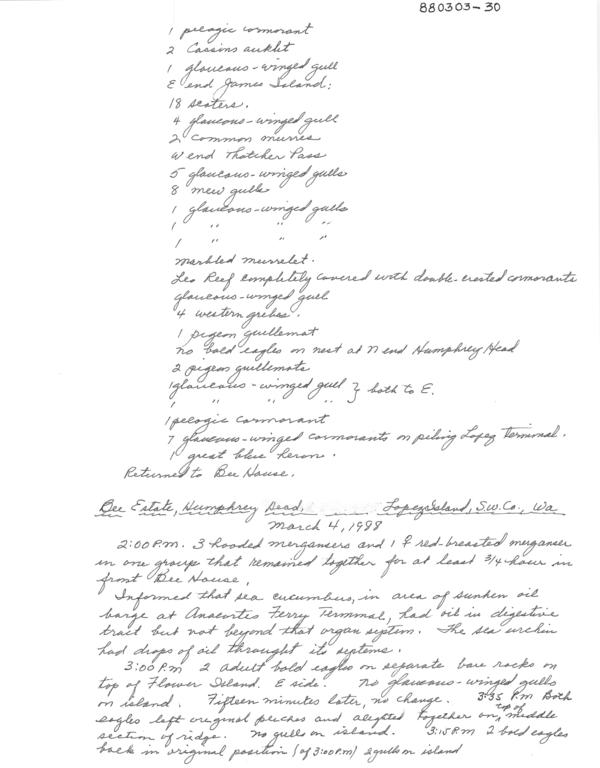 880303-30
1 pelagic cormorant
2 Cassins auklet
1 glaucous-winged gull
E end James Island:
18 scoters.
4 glaucous-winged gull
2 common murres
W end Thatcher Pass
5 glaucous-winged gulls
8 mew gulls
1 glaucous-winged gulls
1 " " "
1 " " "
marbled murrelet.
Leo Reef completely covered with double-crested cormorants
glaucous-winged gull
4 western grebes.
1 pigeon guillemot
no bald eagles on nest at N end Humphrey Head
2 pigeon guillemots
1 glaucous-winged gull } both to E.
1 " " "
1 pelagic cormorant
7 glaucous-winged cormorants on piling Lopez Terminal.
1 great blue heron.
Returned to Bee House.
Bee Estate, Humphrey Head, Lopez Island, S.W. Co., Wa
March 4, 1988
2:00 P.M. 3 hooded mergansers and 1 ♀ red-breasted merganser
in one group that remained together for at least 3/4 hour in
front Bee House.
Informed that sea cucumbers, in area of sunken oil
barge at Anacortes Ferry Terminal, had oil in digestive
tract but not beyond that organ septum. The sea urchin
had drops of oil throught its septums.
3:00 P.M 2 adult bald eagles on separate bare rocks on
top of Flower Island. E side. No glaucous-winged gulls
on island. Fifteen minutes later, no change. 3:35 P.M Both
eagles left original perches and alighted together on top of middle
section of ridge. No gulls on island. 3:15 P.M 2 bald eagles
back in original position (of 3:00 P.M) 2 gulls on island